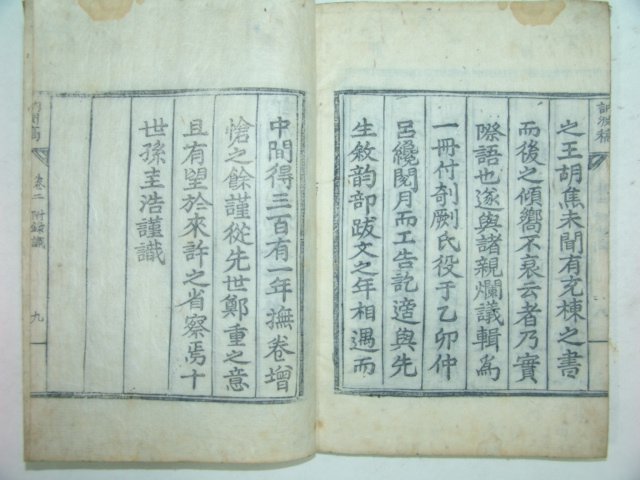 之王胡焦未聞有充棟之書
而後之傾嚮不衰云者乃實
際語也遂與諸親爛議輯爲
一冊付剞劂氏役于乙卯仲
呂纔閱月而工告訖適與先
生敘韵部跋文之年相遇而
中間得三百有一年撫卷增
愴之餘謹從先世鄭重之意
且有望於來許之省察焉十
世孫圭浩謹識
卷二 附 識
九